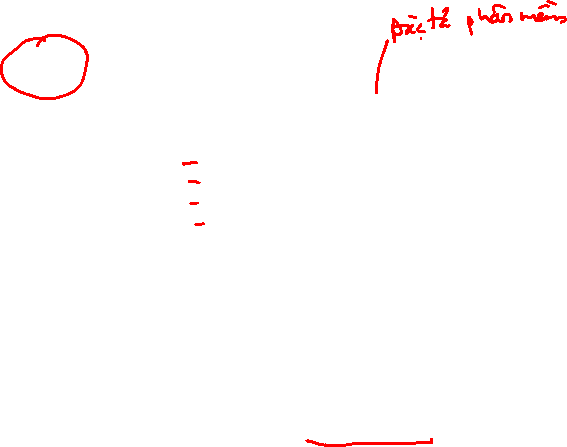 Đặc tả phần mềm